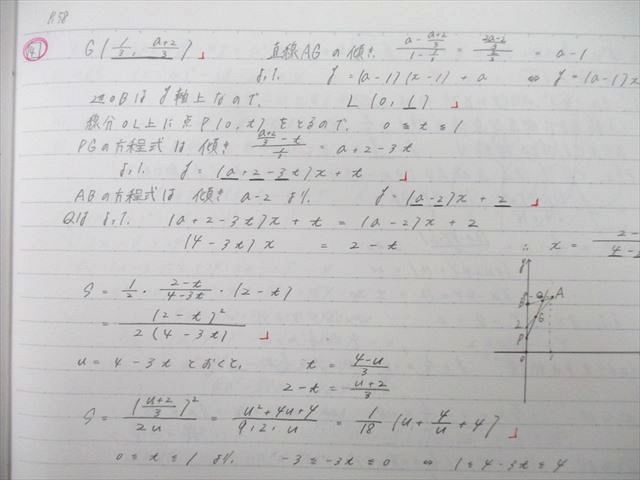 P.58
(4) G(1/3, (a+2)/3) 直線AGの傾き (a - (a+2)/3)/(1 - 1/3) = ((2a-2)/3)/(2/3) = a-1
より y = (a-1)(x-1) + a ⇔ y = (a-1)x
辺OBはy軸上なので L(0, 1)
線分OL上に点P(0, t)をとるので 0≦t≦1
PGの方程式は 傾き ((a+2)/3 - t)/(1/3) = a+2-3t
より y = (a+2-3t)x + t
ABの方程式は 傾き a-2 より y = (a-2)x + 2
Qは より (a+2-3t)x + t = (a-2)x + 2
(4-3t)x = 2-t ∴ x = (2-
4-
S = 1/2 · (2-t)/(4-3t) · (2-t)
= (2-t)²/2(4-3t)
u = 4-3t とおくと、 t = (4-u)/3
2-t = (u+2)/3
S = ((u+2)/3)²/2u = (u²+4u+4)/(9·2·u) = 1/18 (u + 4/u + 4)
0≦t≦1 より -3≦-3t≦0 ⇔ 1≦4-3t≦4
y
B
Q
A
2
G
P
0